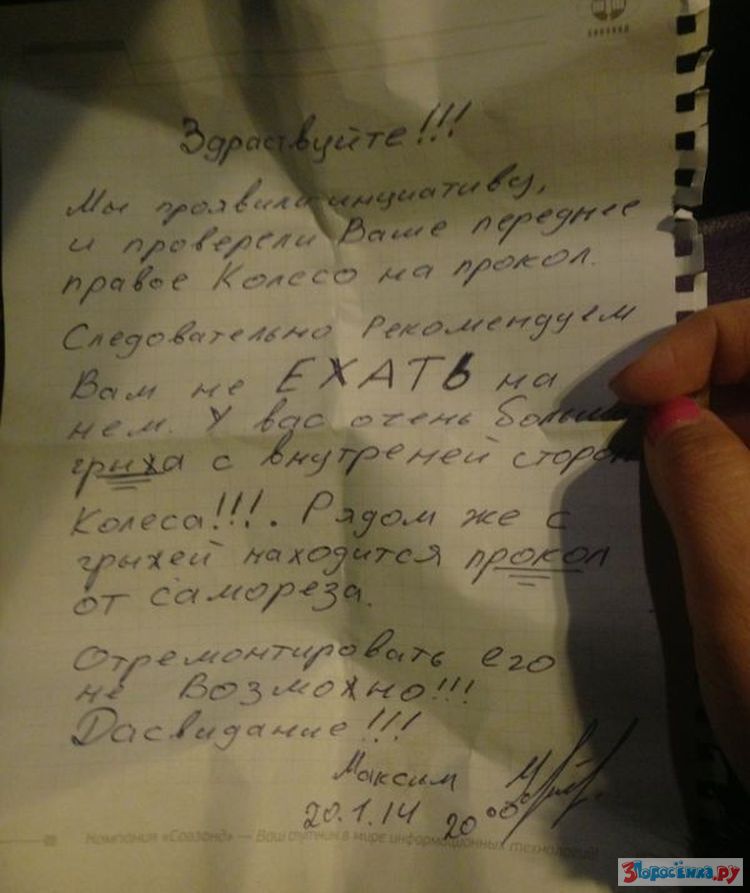 Здраствуйте!!!
Мы проявили инициативу,
и проверели Ваше переднее
правое Колесо на прокол.
Следовательно Рекомендуем
Вам не ЕХАТЬ на
нем. У вас очень больша
грыха с внутреней сторон
Колеса!!!. Рядом же с
грыхей находится прокол
от самореза.
Отремонтировать его
не Возможно!!!
Дасвидание!!!
Максим
20.1.14 20 00
Компания «Совзонд» — Ваш спутник в мире информационных технологий!
3Поросёнка.ру